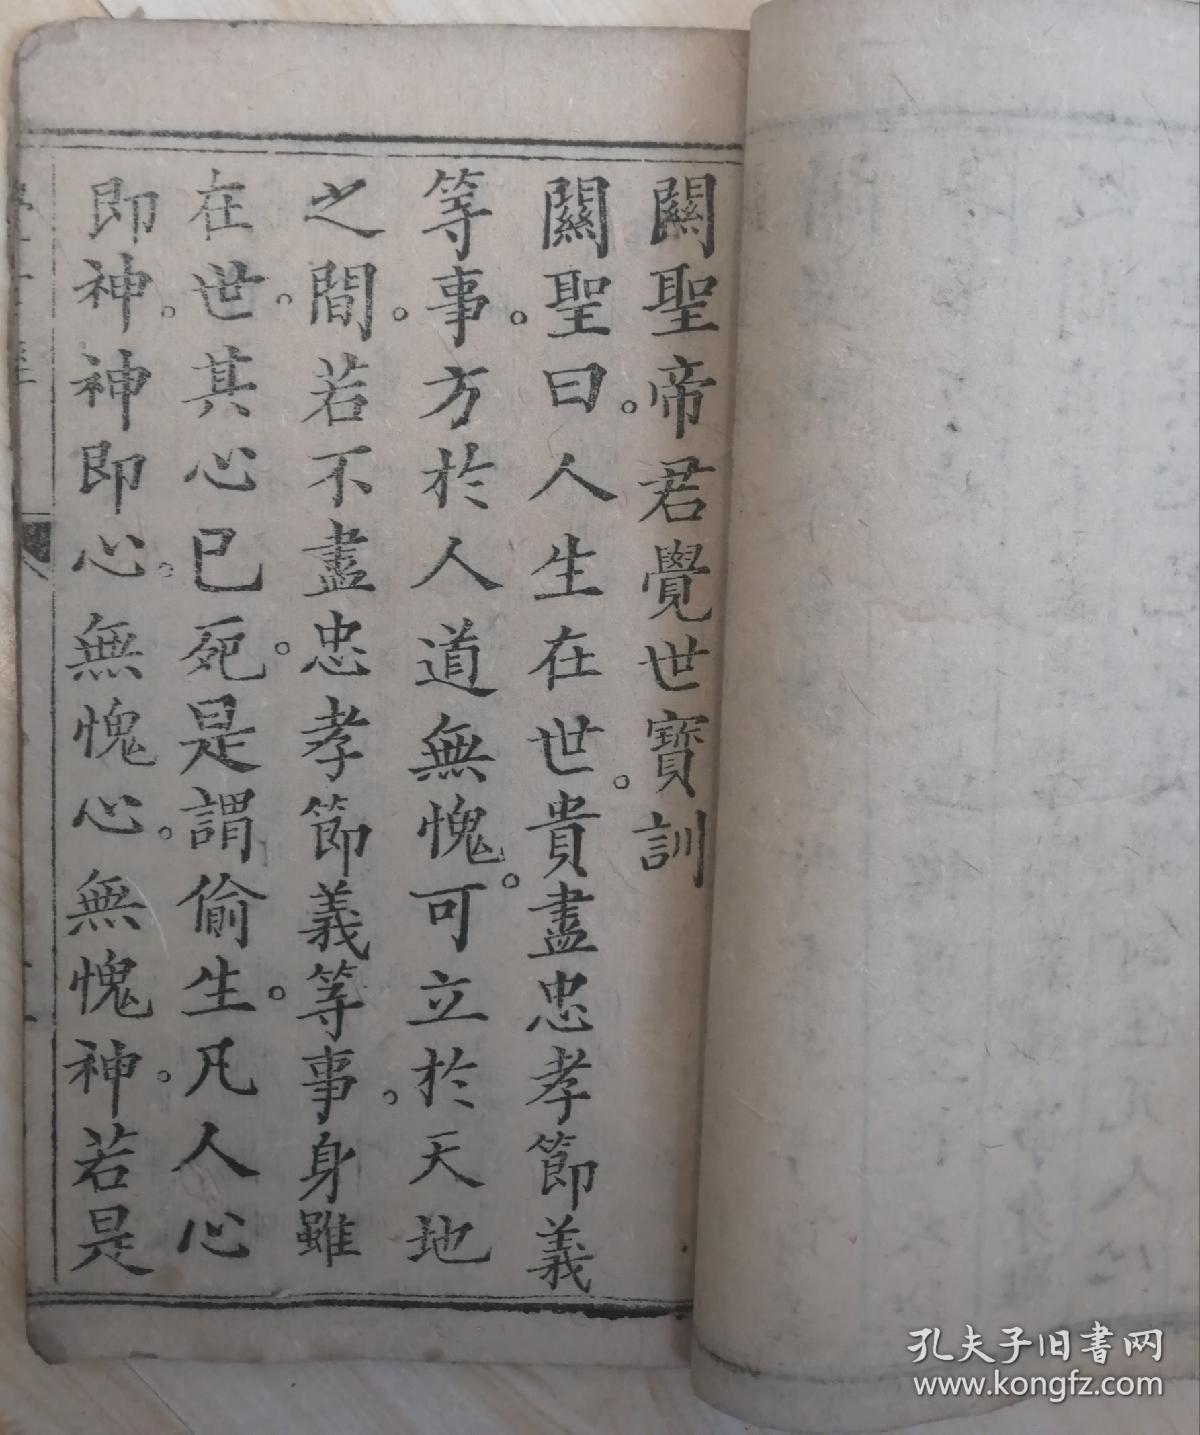 關聖帝君覺世寶訓
關聖曰。人生在世。貴盡忠孝節義
等事。方於人道無愧。可立於天地
之間。若不盡忠孝節義等事。身雖
在世。其心已死。是謂偷生。凡人心
即神。神即心。無愧心。無愧神。若是
孔夫子旧书网
www.kongfz.com